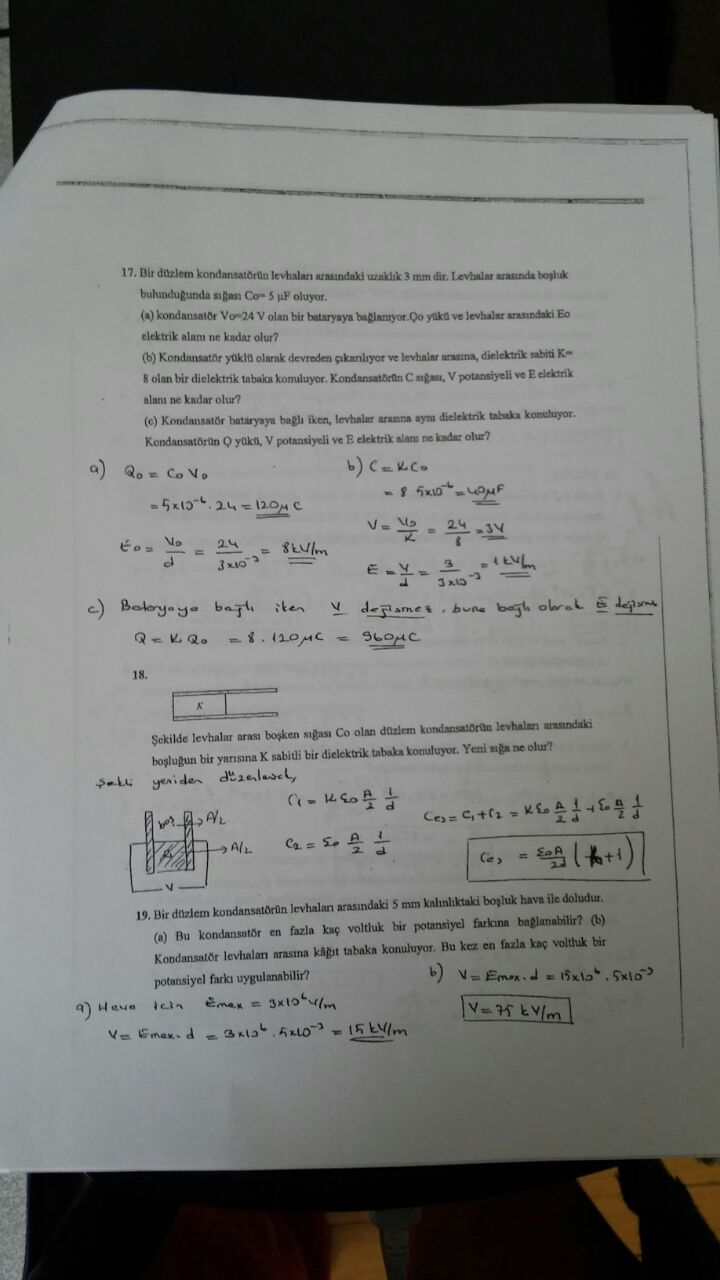 17. Bir düzlem kondansatörün levhaları arasındaki uzaklık 3 mm dir. Levhalar arasında boşluk
bulunduğunda sığası Co= 5 µF oluyor.
(a) kondansatör Vo=24 V olan bir bataryaya bağlanıyor.Qo yükü ve levhalar arasındaki Eo
elektrik alanı ne kadar olur?
(b) Kondansatör yüklü olarak devreden çıkarılıyor ve levhalar arasına, dielektrik sabiti K=
8 olan bir dielektrik tabaka konuluyor. Kondansatörün C sığası, V potansiyeli ve E elektrik
alanı ne kadar olur?
(c) Kondansatör bataryaya bağlı iken, levhalar arasına aynı dielektrik tabaka konuluyor.
Kondansatörün Q yükü, V potansiyeli ve E elektrik alanı ne kadar olur?
a) Q₀ = C₀ V₀
= 5x10⁻⁶ . 24 = 120µC
E₀ = V₀/d = 24/3x10⁻³ = 8kV/m
b) C = KC₀
= 8 5x10⁻⁶ = 40µF
V = V₀/K = 24/8 = 3V
E = V/d = 3/3x10⁻³ = 1 kV/m
c) Bataryaya bağlı iken V değişmez, buna bağlı olarak E değişmez
Q = K Q₀ = 8 . 120µC = 960µC
18.
K
Şekilde levhalar arası boşken sığası Co olan düzlem kondansatörün levhaları arasındaki
boşluğun bir yarısına K sabitli bir dielektrik tabaka konuluyor. Yeni sığa ne olur?
Şekli yeniden düzenlersek,
boş A/2
K A/2
V
C₁ = K ε₀ A/2 1/d
C₂ = ε₀ A/2 1/d
Ceş = C₁ + C₂ = K ε₀ A/2 1/d + ε₀ A/2 1/d
Ceş = ε₀A/2d (K+1)
19. Bir düzlem kondansatörün levhaları arasındaki 5 mm kalınlıktaki boşluk hava ile doludur.
(a) Bu kondansatör en fazla kaç voltluk bir potansiyel farkına bağlanabilir? (b)
Kondansatör levhaları arasına kâğıt tabaka konuluyor. Bu kez en fazla kaç voltluk bir
potansiyel farkı uygulanabilir?
a) Hava için Emax = 3x10⁶ V/m
V = Emax.d = 3x10⁶ . 5x10⁻³ = 15 kV/m
b) V = Emax.d = 15x10⁶ . 5x10⁻³
V = 75 kV/m